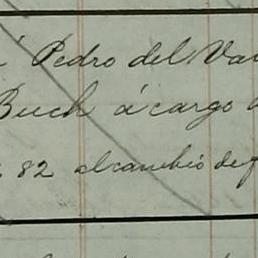 á Pedro del Va
Buch á cargo
82 al cambio de